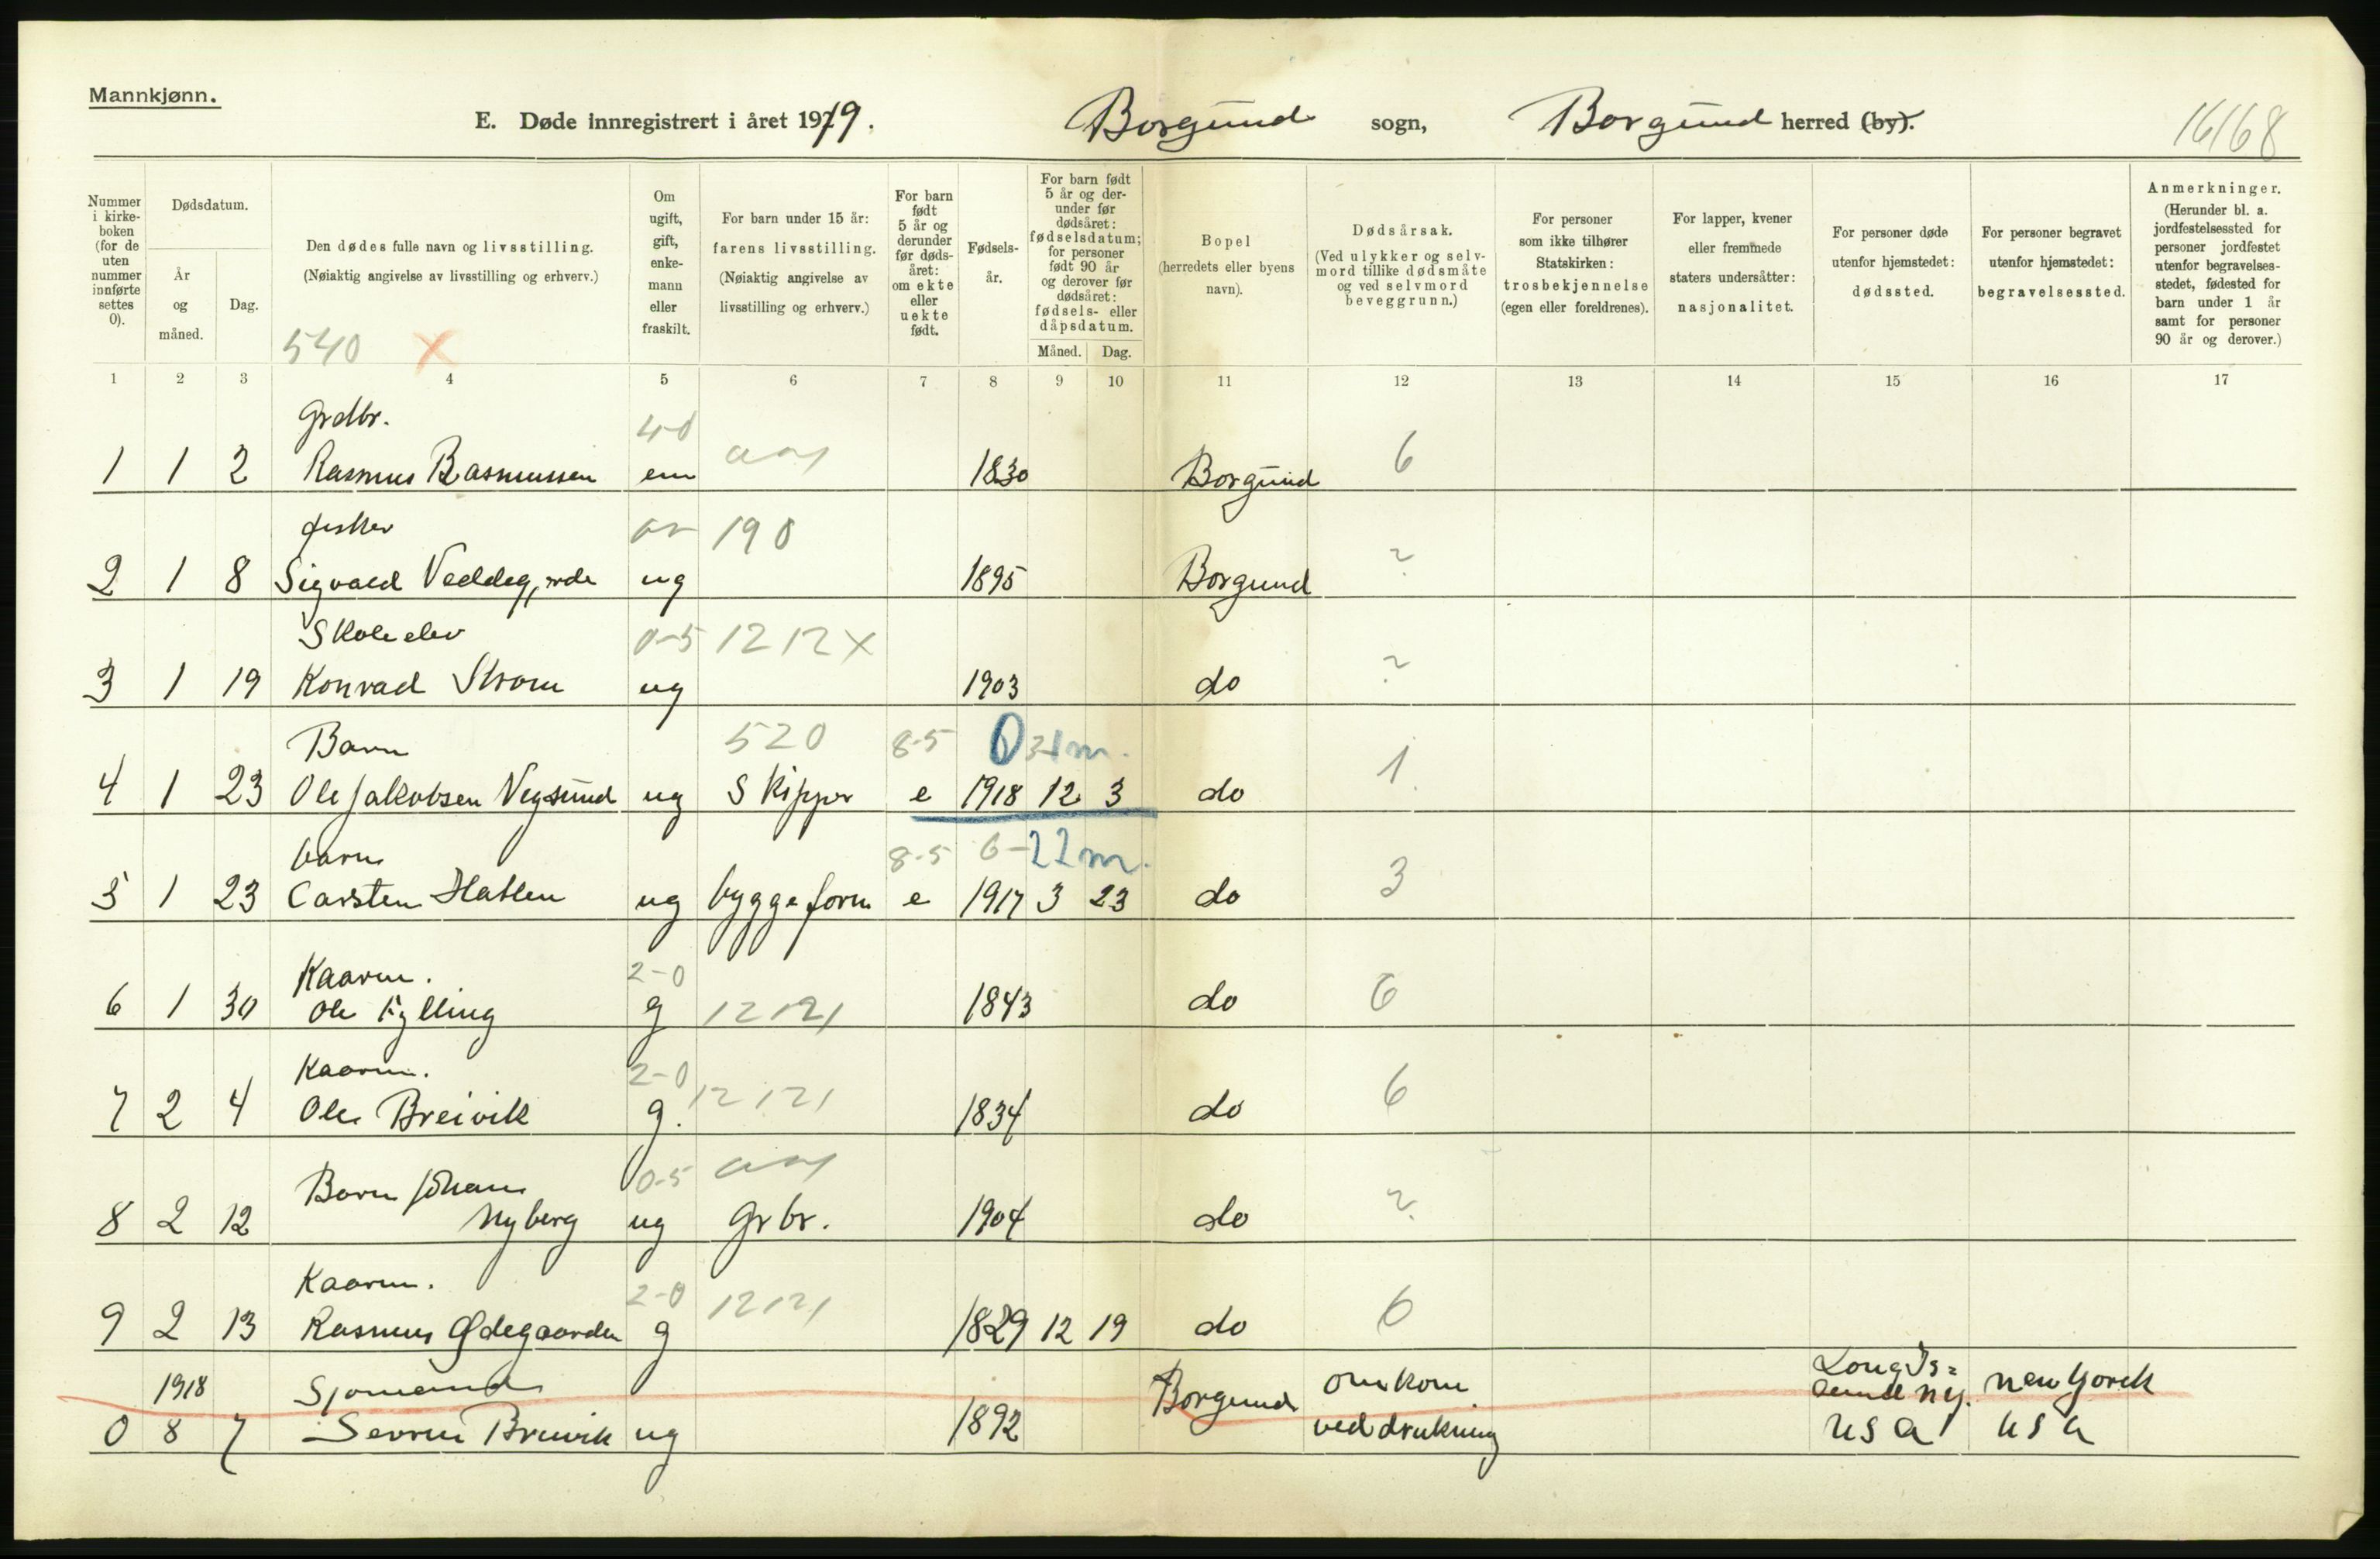 Mannkjønn.
E. Døde innregistrert i året 1919.
Borgund sogn,
Borgund herred (by).
16168
Nummer i kirke-boken (for de uten nummer innførte settes 0).
Dødsdatum.
År og måned.
Dag.
Den dødes fulle navn og livsstilling.
(Nøiaktig angivelse av livsstilling og erhverv.)
540 X
Om ugift, gift, enke-mann eller fraskilt.
For barn under 15 år: farens livsstilling.
(Nøiaktig angivelse av livsstilling og erhverv.)
For barn født 5 år og derunder før døds-året: om ekte eller uekte født.
Fødsels-år.
For barn født 5 år og der-under før dødsåret: fødselsdatum; for personer født 90 år og derover før dødsåret: fødsels- eller dåpsdatum.
Måned. Dag.
Bopel (herredets eller byens navn).
Dødsårsak.
(Ved ulykker og selv-mord tillike dødsmåte og ved selvmord beveggrunn.)
For personer som ikke tilhører Statskirken: trosbekjennelse (egen eller foreldrenes).
For lapper, kvener eller fremmede staters undersåtter: nasjonalitet.
For personer døde utenfor hjemstedet: dødssted.
For personer begravet utenfor hjemstedet: begravelsessted.
Anmerkninger.
(Herunder bl. a. jordfestelsessted for personer jordfestet utenfor begravelses-stedet, fødested for barn under 1 år samt for personer 90 år og derover.)
1 2 3 4 5 6 7 8 9 10 11 12 13 14 15 16 17
Grdbr. 4-0
1 1 2 Rasmus Rasmussen em 1830 Borgund 6
fisker 190
2 1 8 Sigvald Veddegjerde ug 1895 Borgund ?
Skoleelev 0-5 1212 X
3 1 19 Konrad Strom ug 1903 do ?
Barn 520 8-5 0 31m.
4 1 23 Ole Jakobsen Vegsund ug Skipper e 1918 12 3 do 1
barn 8-5 6-22m.
5 1 23 Carsten Hatlen ug byggeform e 1917 3 23 do 3
Kaarm. 2-0
6 1 30 Ole Fylling g 12121 1843 do 6
Kaarm. 2-0
7 2 4 Ole Breivik g. 12121 1834 do 6
Barn Johan 0-5
8 2 12 Nyberg ug Grbr. 1904 do ?
Kaarm. 2-0 12121
9 2 13 Rasmus Ødegaarden g 1829 12 19 do 6
1918 Sjomand Borgund omkom Long Is= land NY. New Yorck
0 8 7 Breivik ug 1892 ved drukning USA USA